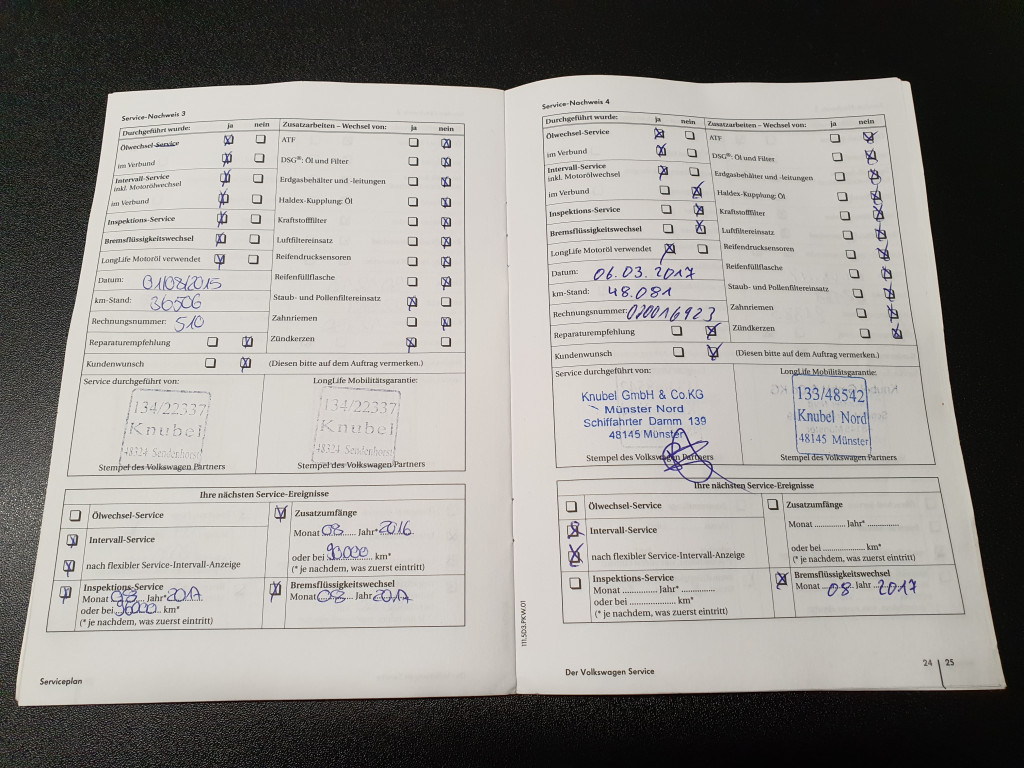 Service-Nachweis 3
Durchgeführt wurde: ja nein Zusatzarbeiten – Wechsel von: ja nein
Ölwechsel-Service ATF
im Verbund DSG®: Öl und Filter
Intervall-Service
inkl. Motorölwechsel Erdgasbehälter und -leitungen
im Verbund Haldex-Kupplung: Öl
Inspektions-Service Kraftstofffilter
Bremsflüssigkeitswechsel Luftfiltereinsatz
LongLife Motoröl verwendet Reifendrucksensoren
Datum: 01/08/2015 Reifenfüllflasche
km-Stand: 36506 Staub- und Pollenfiltereinsatz
Rechnungsnummer: 510 Zahnriemen
Reparaturempfehlung Zündkerzen
Kundenwunsch (Diesen bitte auf dem Auftrag vermerken.)
Service durchgeführt von: LongLife Mobilitätsgarantie:
134/22337 134/22337
Knubel Knubel
48324 Sendenhorst 48324 Sendenhorst
Stempel des Volkswagen Partners Stempel des Volkswagen Partners
Ihre nächsten Service-Ereignisse
Ölwechsel-Service Zusatzumfänge
Monat 08 Jahr* 2016
Intervall-Service
oder bei 90000 km*
nach flexibler Service-Intervall-Anzeige (* je nachdem, was zuerst eintritt)
Inspektions-Service Bremsflüssigkeitswechsel
Monat 08 Jahr* 2017 Monat 08 Jahr 2017
oder bei 96000 km*
(* je nachdem, was zuerst eintritt)
Serviceplan
Service-Nachweis 4
Durchgeführt wurde: ja nein Zusatzarbeiten – Wechsel von: ja nein
Ölwechsel-Service ATF
im Verbund DSG®: Öl und Filter
Intervall-Service
inkl. Motorölwechsel Erdgasbehälter und -leitungen
im Verbund Haldex-Kupplung: Öl
Inspektions-Service Kraftstofffilter
Bremsflüssigkeitswechsel Luftfiltereinsatz
LongLife Motoröl verwendet Reifendrucksensoren
Datum: 06.03.2017 Reifenfüllflasche
km-Stand: 48.081 Staub- und Pollenfiltereinsatz
Rechnungsnummer: 020016923 Zahnriemen
Reparaturempfehlung Zündkerzen
Kundenwunsch (Diesen bitte auf dem Auftrag vermerken.)
Service durchgeführt von: LongLife Mobilitätsgarantie:
Knubel GmbH & Co.KG 133/48542
Münster Nord Knubel Nord
Schiffahrter Damm 139
48145 Münster 48145 Münster
Stempel des Volkswagen Partners Stempel des Volkswagen Partners
Ihre nächsten Service-Ereignisse
Ölwechsel-Service Zusatzumfänge
Intervall-Service Monat ............ Jahr* ............
nach flexibler Service-Intervall-Anzeige oder bei ................ km*
(* je nachdem, was zuerst eintritt)
Inspektions-Service Bremsflüssigkeitswechsel
Monat ............ Jahr* ............ Monat 08 Jahr 2017
oder bei ................ km*
(* je nachdem, was zuerst eintritt)
111.5D3.PKW.01
Der Volkswagen Service 24 | 25